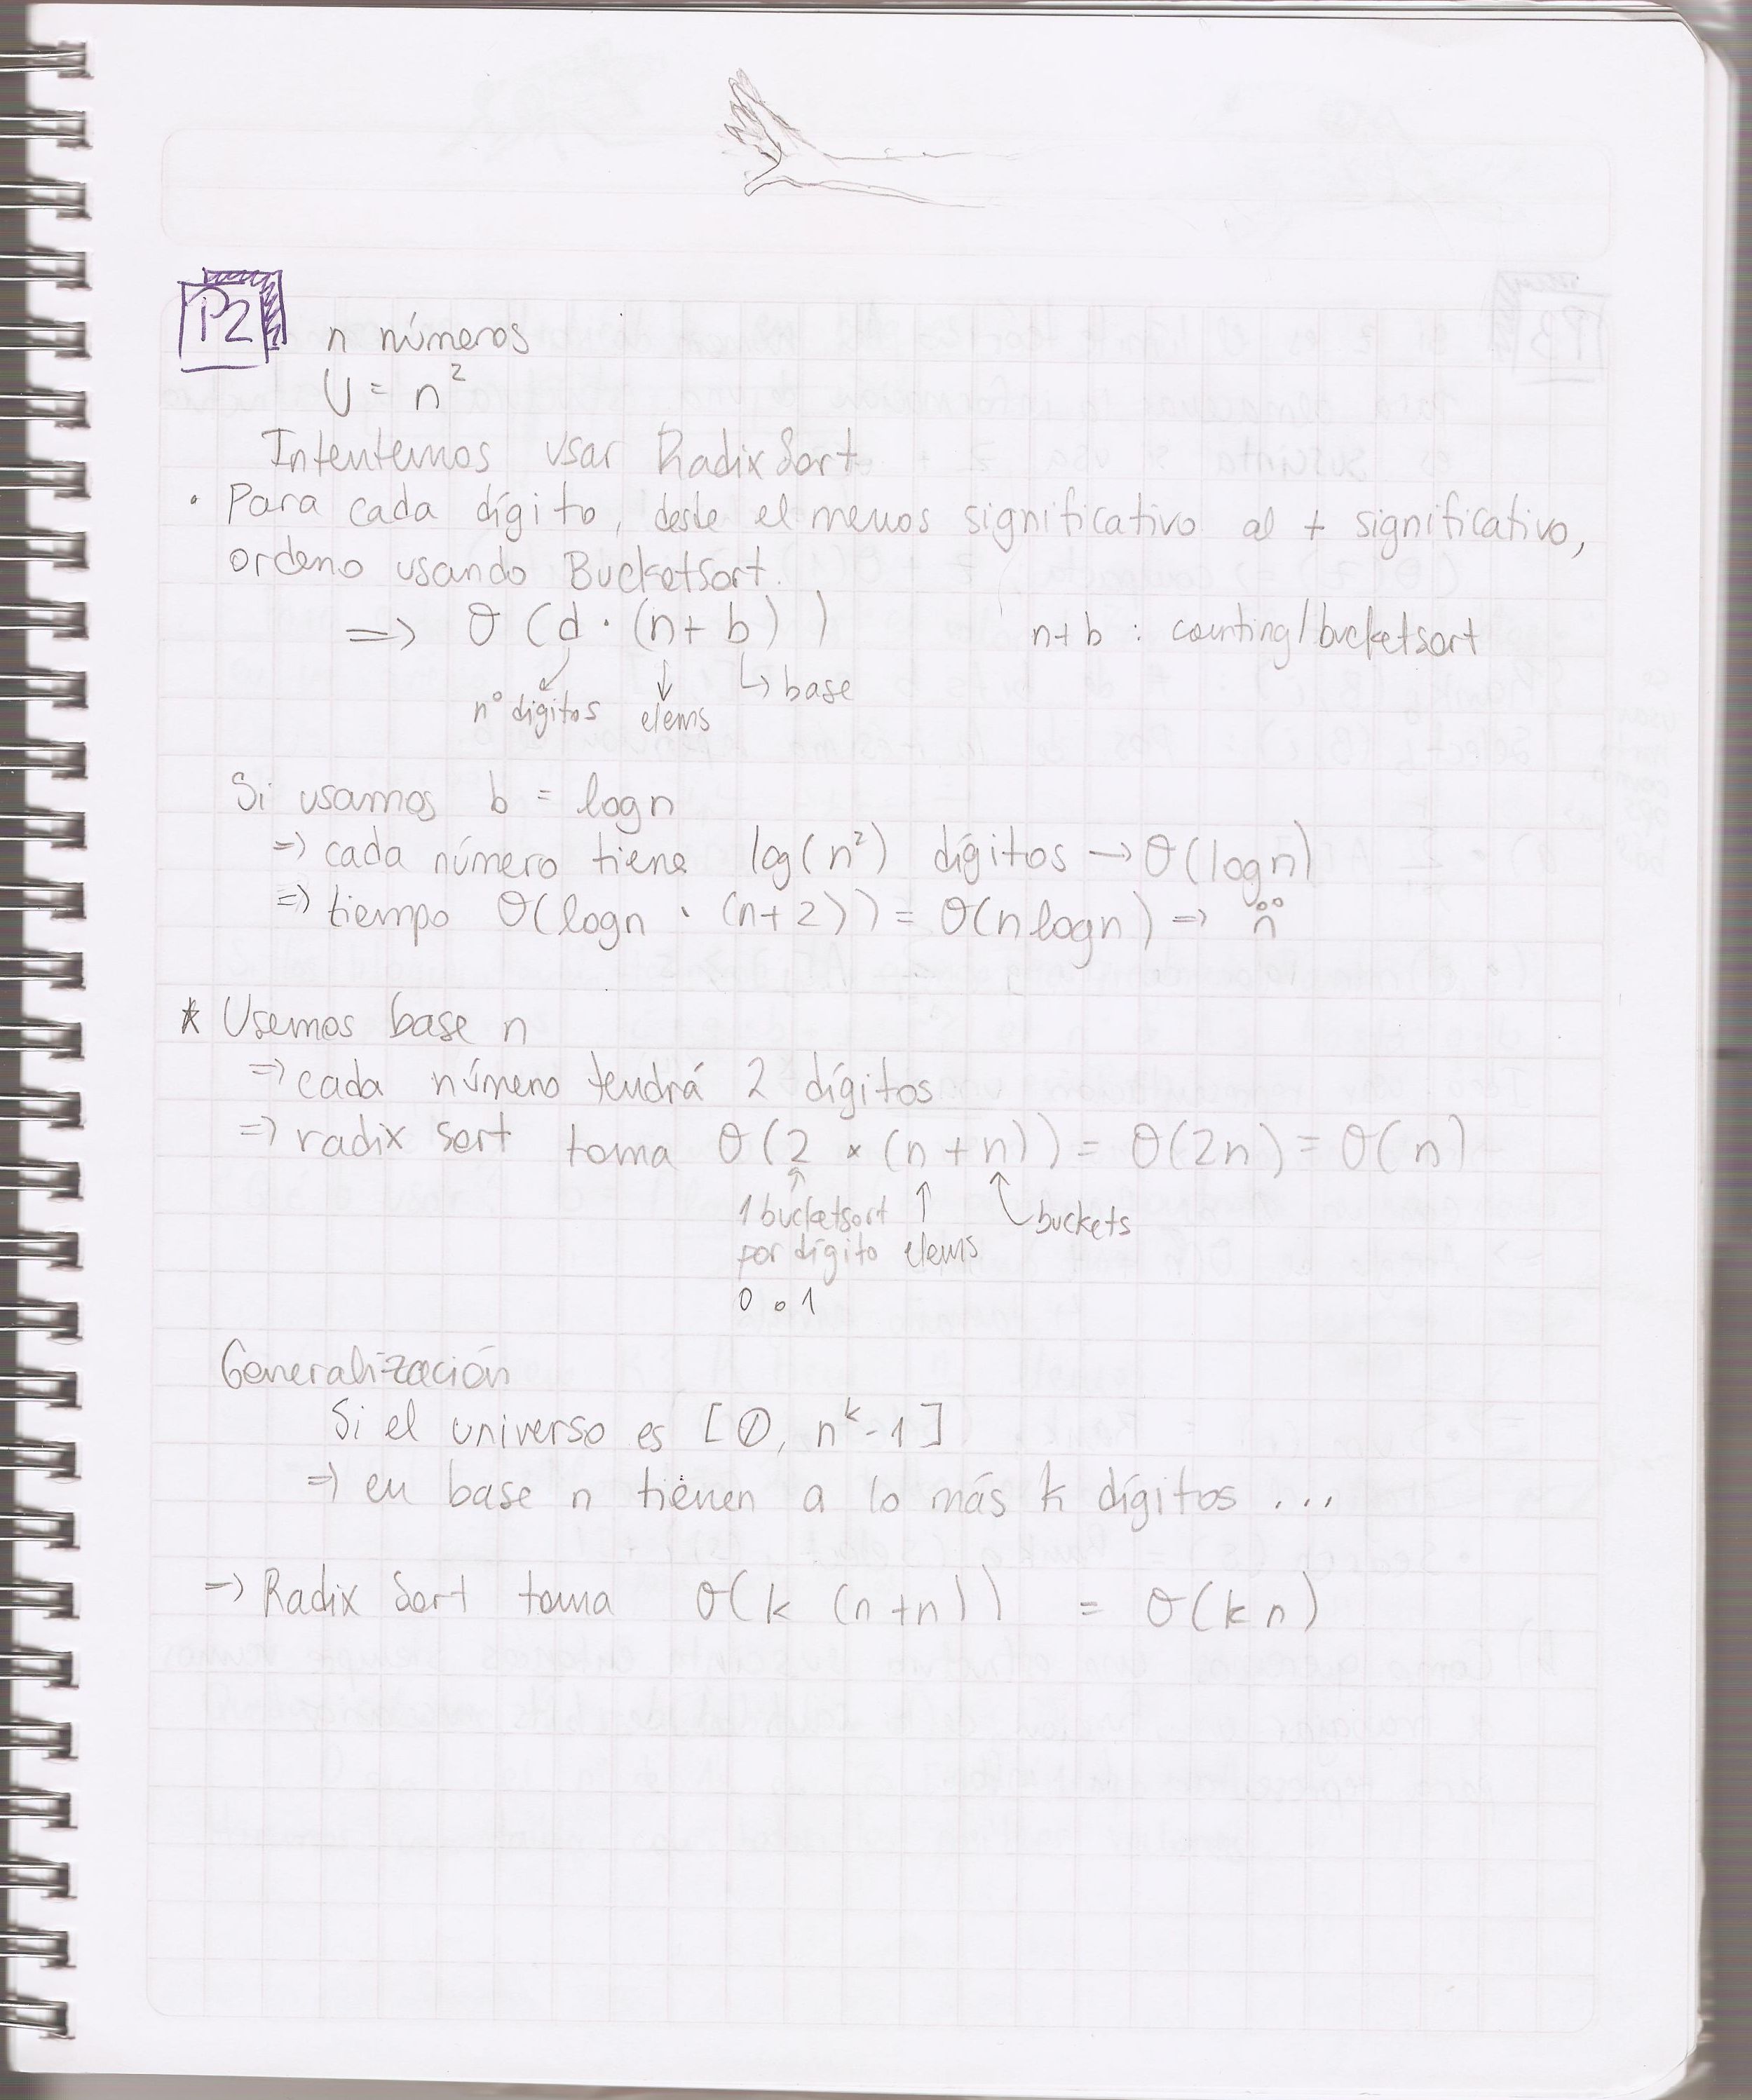 P2
n números
U = n²
Intentemos usar RadixSort
• Para cada dígito, desde el menos significativo al + significativo,
ordeno usando Bucketsort.
=> O(d · (n+b)) n+b : counting/bucketsort
n° dígitos elems base
Si usamos b = logn
=> cada número tiene log(n²) dígitos → O(logn)
=> tiempo O(logn · (n+2)) = O(nlogn) =>
* Usemos base n
=> cada número tendrá 2 dígitos
=> radix sort toma O(2 × (n+n)) = O(2n) = O(n)
1 bucketsort buckets
por dígito elems
0 o 1
Generalización
Si el universo es [0, n^k-1]
=> en base n tienen a lo más k dígitos ...
=> Radix Sort toma O(k (n+n)) = O(kn)